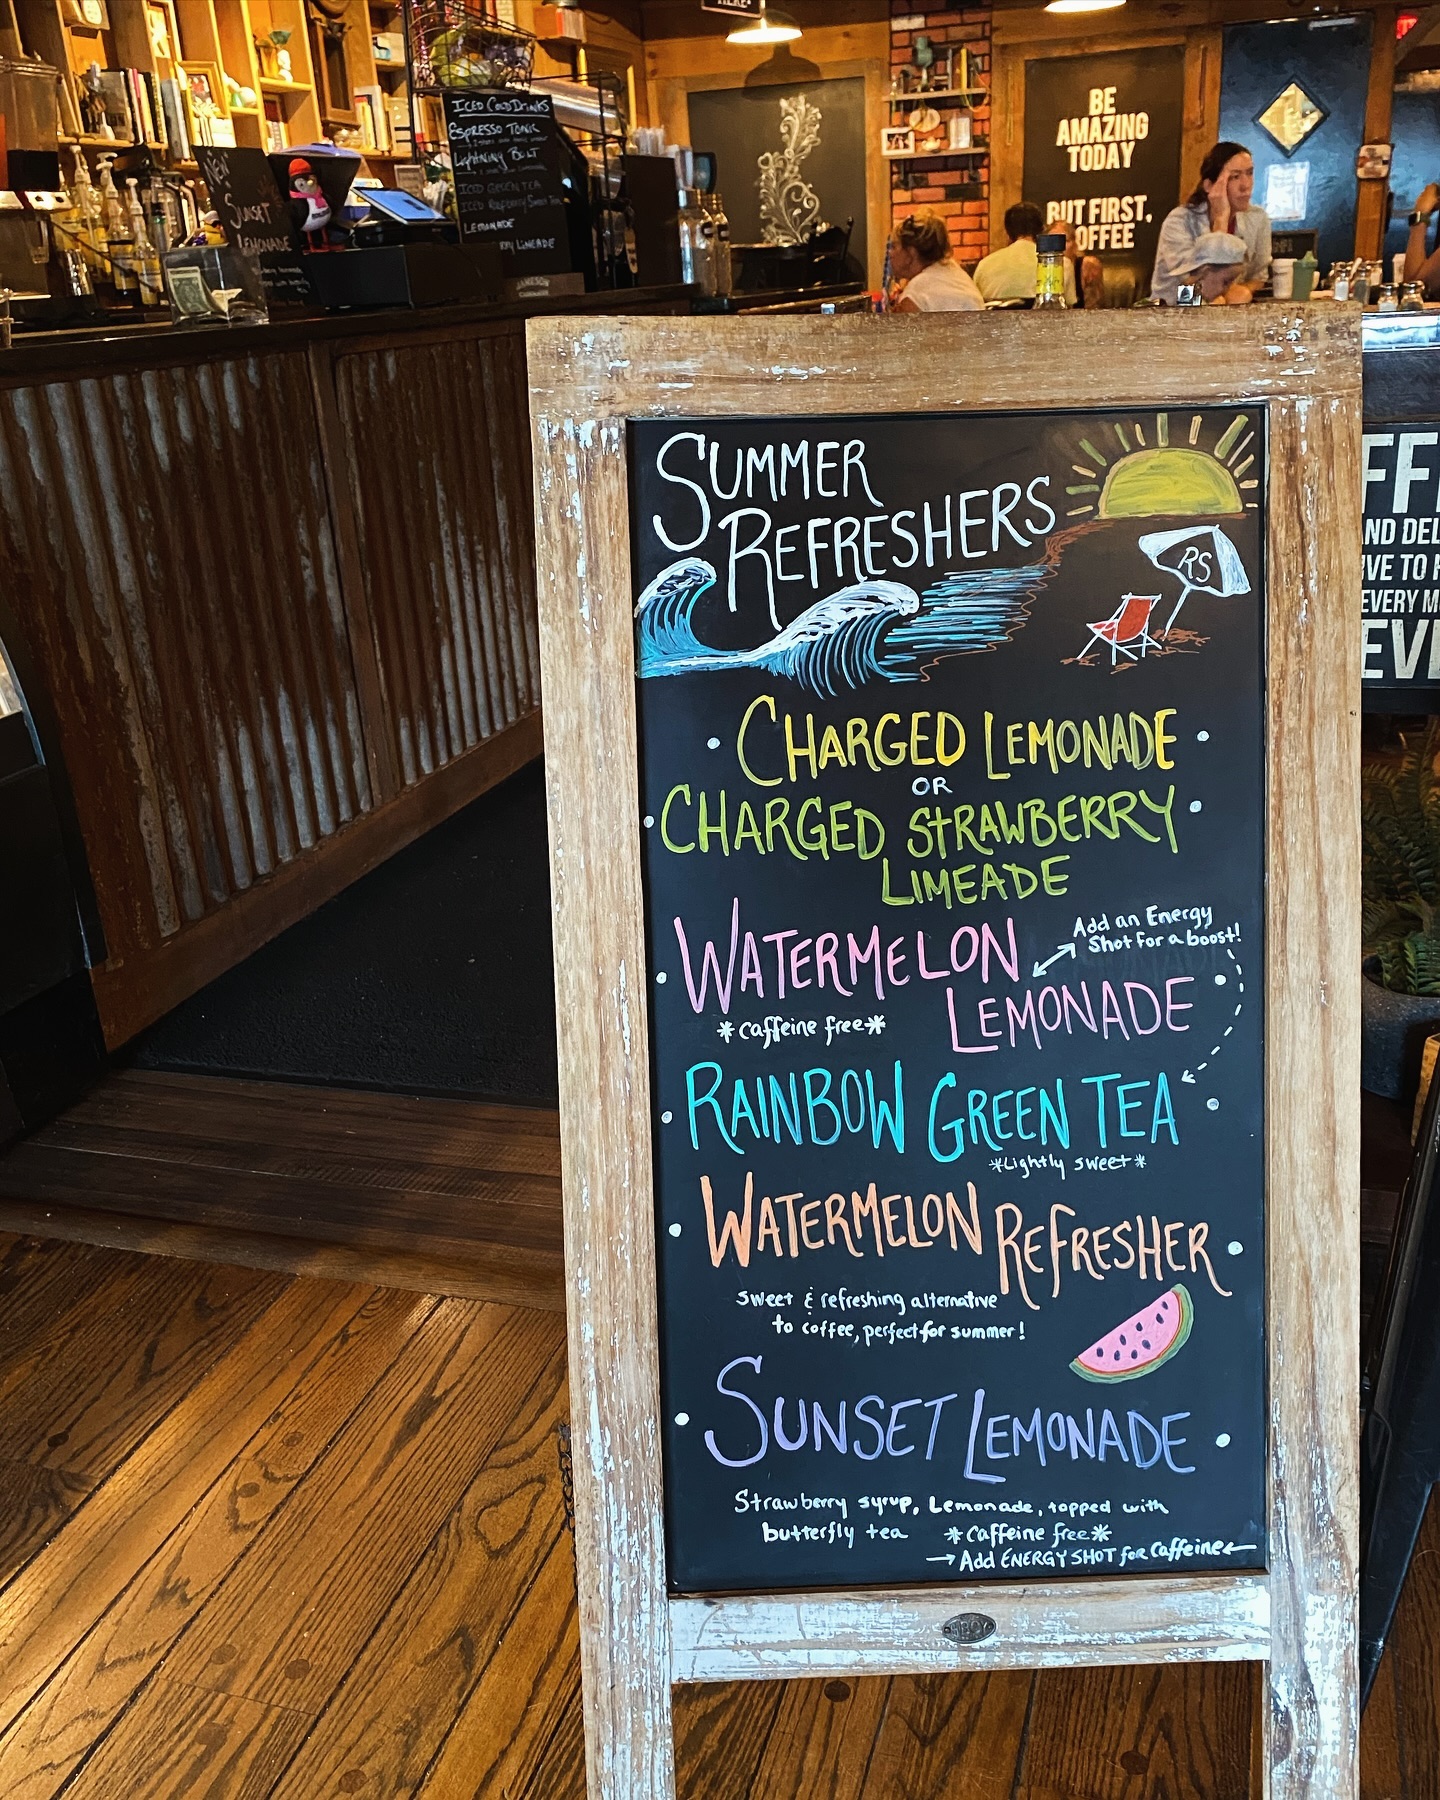 HERE
BE
AMAZING
TODAY
BUT FIRST,
COFFEE
ICED COLD DRINKS
ESPRESSO TONIC
LIGHTNING BOLT
ICED GREEN TEA
ICED RASPBERRY SWEET TEA
LEMONADE
LIMEADE
NEW
SUNSET
LEMONADE
SUMMER
REFRESHERS
RS
CHARGED LEMONADE
OR
CHARGED STRAWBERRY
LIMEADE
Add an Energy
Shot for a boost!
WATERMELON
LEMONADE
*caffeine free*
RAINBOW GREEN TEA
*Lightly sweet*
WATERMELON REFRESHER
sweet & refreshing alternative
to coffee, perfect for summer!
SUNSET LEMONADE
Strawberry syrup, Lemonade, topped with
butterfly tea *Caffeine free*
Add ENERGY SHOT for Caffeine
FF
ND DEL
VE TO
EVERY M
EV